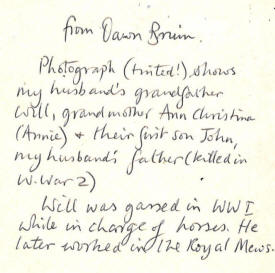 from Dawn Bruin.
Photograph (tinted!) shows
my husband's grandfather
Will, grandmother Ann Christina
(Annie) & their first son John,
my husband's father (killed in
W. War 2)
Will was gassed in WW I
while in charge of horses. He
later worked in the Royal Mews.